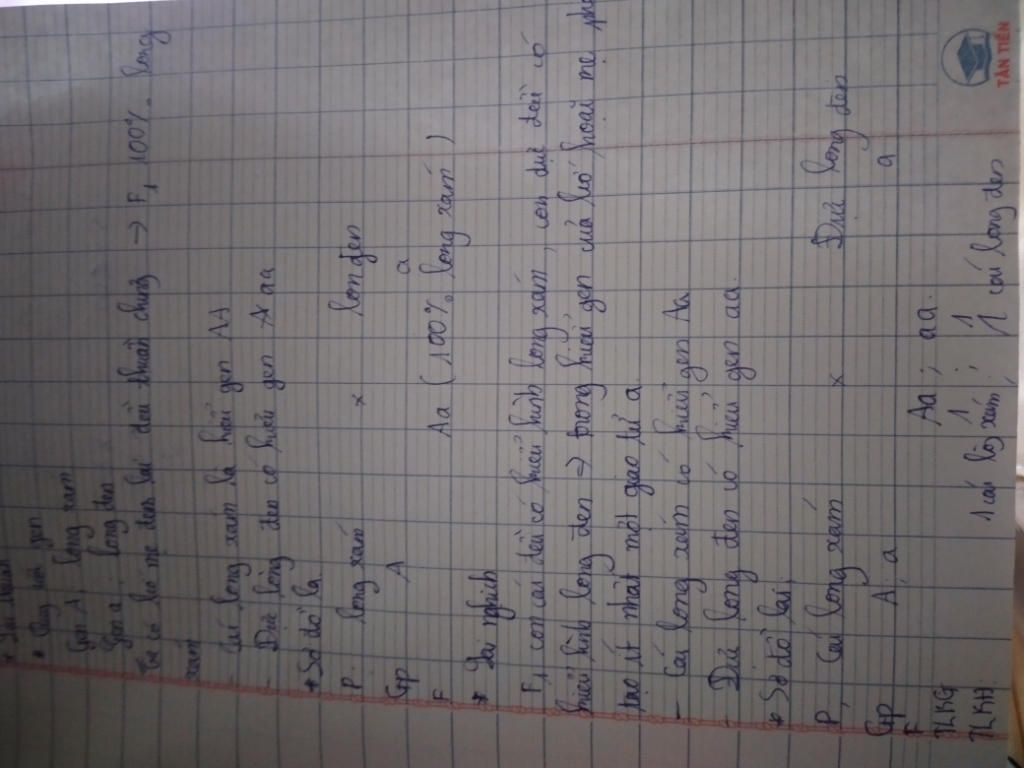 * Lai thuận
* Quy ước gen
Gen A lông xám
Gen a lông đen
Ta có bố mẹ đem lai đều thuần chủng → F1 100% lông
xám
- Cái lông xám là kiểu gen AA
- Đực lông đen có kiểu gen A aa
* Sơ đồ lai
P lông xám x lon đen
GP A a
F Aa (100% lông xám)
* Lai nghịch
F1 con cái đều có kiểu hình lông xám, con đực đều có
kiểu hình lông đen → trong kiểu gen của bố hoặc mẹ phải
tạo ít nhất một giao tử a
- Cái lông xám có kiểu gen Aa
- Đực lông đen có kiểu gen aa
* Sơ đồ lai
P, Cái lông xám x Đực lông đen
GP A, a a
F Aa ; aa.
TLKG 1 : 1
TLKH: 1 cái lông xám ; 1 cái lông đen
TÂN TIẾN